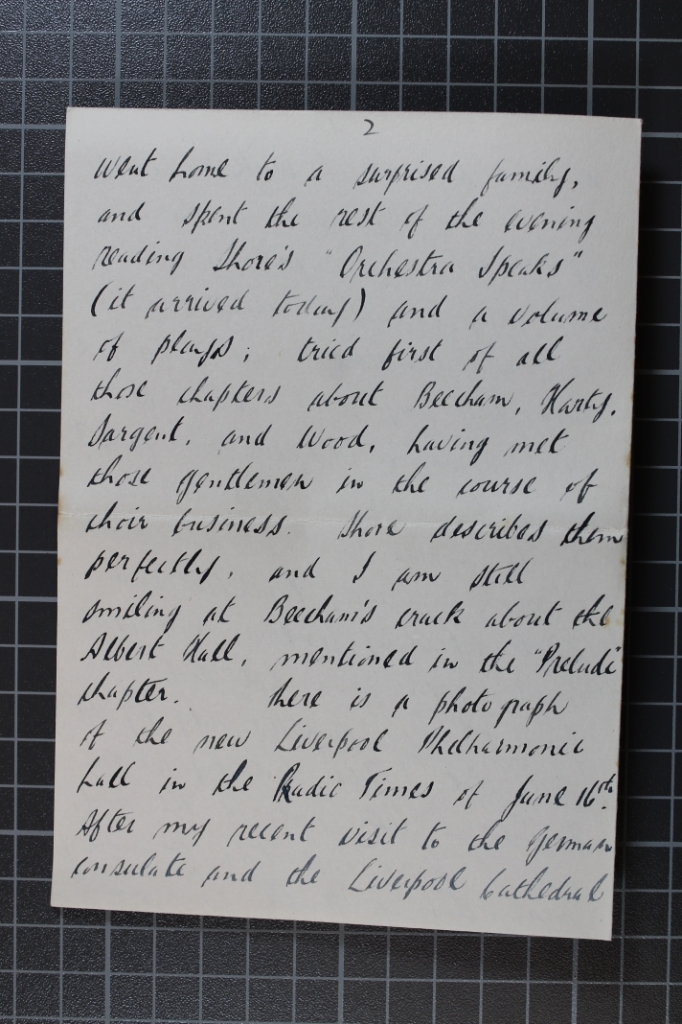 2
went home to a surprised family,
and spent the rest of the evening
reading Shore's "Orchestra Speaks"
(it arrived today) and a volume
of plays; tried first of all
those chapters about Beecham, Harty,
Sargent, and Wood, having met
those gentlemen in the course of
their business. Shore describes them
perfectly, and I am still
smiling at Beecham's crack about the
Albert Hall, mentioned in the "Prelude"
chapter. There is a photograph
of the new Liverpool Philharmonic
hall in the Radio Times of June 16th.
After my recent visit to the German
consulate and the Liverpool Cathedral